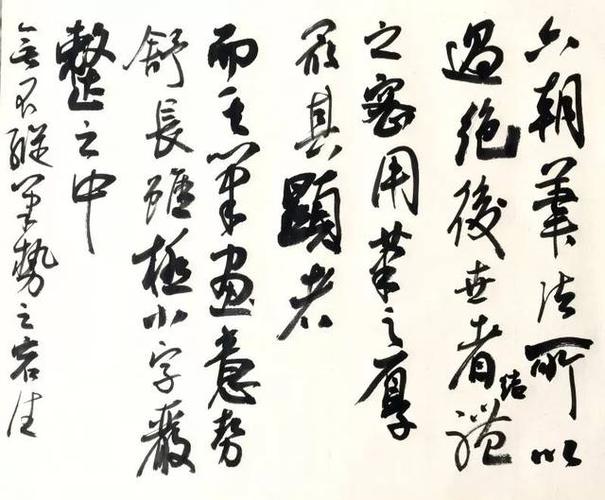 六朝筆法所以
過絶後世者結體
之密用筆之厚
最其顯者
而其筆畫意勢
舒長雖極小字嚴
整之中
無不縱筆勢之宕往